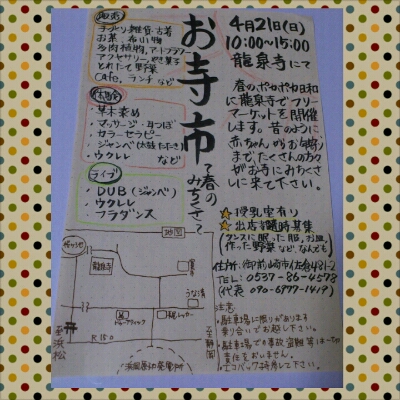 お寺市
〜春のみちくさ〜
4月21日(日)
10:00〜15:00
龍泉寺にて
春のポカポカ日和
に龍泉寺でフリー
マーケットを開催
します。昔のように
赤ちゃんからお年寄り
までたくさんの方々
がお寺にみちくさ
に来て下さい。
★授乳室有り
★出店者随時募集
(タンスに眠った服、お皿、
作った野菜など なんでも)
住所:御前崎市佐倉481-2
TEL:0537-86-4578
(代表 090-6777-1419)
注意
・駐車場に限りがあります
乗り合いでお越し下さい。
・駐車場での事故、盗難等は一切
責任をおいません。
・エコバッグ持参して下さい。
販売
手づくり雑貨・古着
お茶、布小物
多肉植物、アートフラワー
アクセサリー、焼菓子
とれたて野菜
Cafe、ランチ など
体験
・草木染め
・マッサージ・耳つぼ
・カラーセラピー
・ジャンベ(太鼓たたき)
・ウクレレ など
ライブ
・DUB(ジャンベ)
・ウクレレ
・フラダンス
地図
龍泉寺
うな清
至浜松
R150
至静岡
浜岡原子力発電所